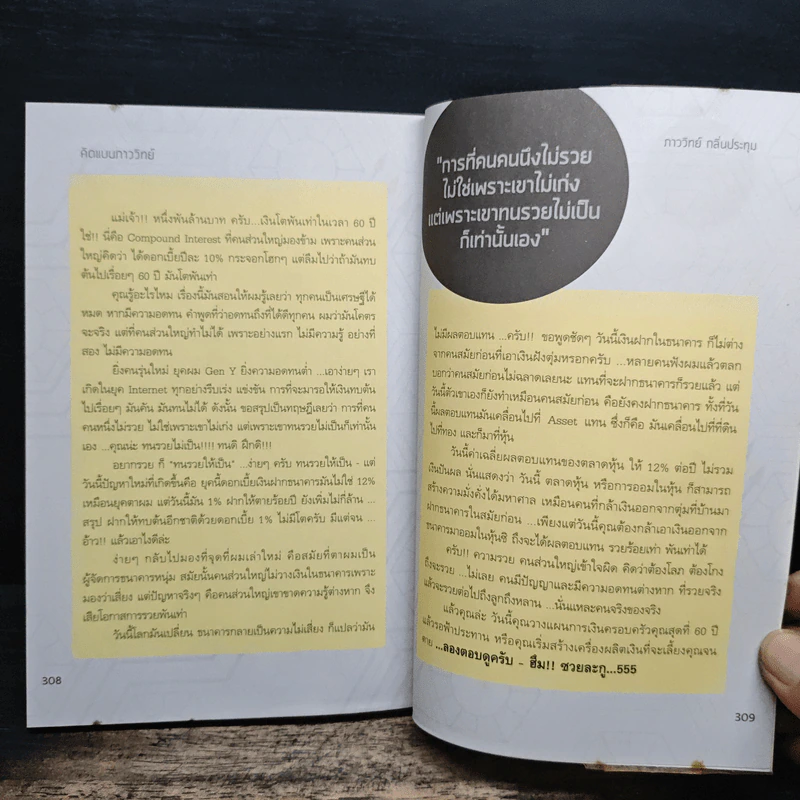 คิดแบบภาววิทย์
แม่เจ้า!! หนึ่งพันล้านบาท ครับ...เงินโตพันเท่าในเวลา 60 ปี
ใช่!! นี่คือ Compound Interest ที่คนส่วนใหญ่มองข้าม เพราะคนส่วน
ใหญ่คิดว่า ได้ดอกเบี้ยปีละ 10% กระจอกโฮกๆ แต่ลืมไปว่าถ้ามันทบ
ต้นไปเรื่อยๆ 60 ปี มันโตพันเท่า
คุณรู้อะไรไหม เรื่องนี้มันสอนให้ผมรู้เลยว่า ทุกคนเป็นเศรษฐีได้
หมด หากมีความอดทน คำพูดที่ว่าอดทนถึงที่ได้ดีทุกคน ผมว่ามันโคตร
จะจริง แต่ที่คนส่วนใหญ่ทำไม่ได้ เพราะอย่างแรก ไม่มีความรู้ อย่างที่
สอง ไม่มีความอดทน
ยิ่งคนรุ่นใหม่ ยุคผม Gen Y ยิ่งความอดทนต่ำ ...เอาง่ายๆ เรา
เกิดในยุค Internet ทุกอย่างรีบเร่ง แข่งขัน การที่จะมารอให้เงินทบต้น
ไปเรื่อยๆ มันคัน มันทนไม่ได้ ดังนั้น ขอสรุปเป็นทฤษฎีเลยว่า การที่คน
คนหนึ่งไม่รวย ไม่ใช่เพราะเขาไม่เก่ง แต่เพราะเขาทนรวยไม่เป็นก็เท่านั้น
เอง ...คุณน่ะ ทนรวยไม่เป็น!!!! ทนดิ ฝึกดิ!!
อยากรวย ก็ "ทนรวยให้เป็น" ...ง่ายๆ ครับ ทนรวยให้เป็น - แต่
วันนี้ปัญหาใหม่ที่เกิดขึ้นคือ ยุคนี้ดอกเบี้ยเงินฝากธนาคารมันไม่ใช่ 12%
เหมือนยุคตาผม แต่วันนี้มัน 1% ฝากให้ตายร้อยปี ยังเพิ่มไม่กี่ล้าน ...
สรุป ฝากให้ทบต้นอีกชาติด้วยดอกเบี้ย 1% ไม่มีโตครับ มีแต่จน ...
อ้าว!! แล้วเอาไงดีล่ะ
ง่ายๆ กลับไปมองที่จุดที่ผมเล่าใหม่ คือสมัยที่ตาผมเป็น
ผู้จัดการธนาคารหนุ่ม สมัยนั้นคนส่วนใหญ่ไม่วางเงินในธนาคารเพราะ
มองว่าเสี่ยง แต่ปัญหาจริงๆ คือคนส่วนใหญ่เขาขาดความรู้ต่างหาก จึง
เสียโอกาสการรวยพันเท่า
วันนี้โลกมันเปลี่ยน ธนาคารกลายเป็นความไม่เสี่ยง ก็แปลว่ามัน
308
ภาววิทย์ กลิ่นประทุม
"การที่คนคนนึงไม่รวย
ไม่ใช่เพราะเขาไม่เก่ง
แต่เพราะเขาทนรวยไม่เป็น
ก็เท่านั้นเอง"
ไม่มีผลตอบแทน ...ครับ!! ขอพูดชัดๆ วันนี้เงินฝากในธนาคาร ก็ไม่ต่าง
จากคนสมัยก่อนที่เอาเงินฝังตุ่มหรอกครับ ...หลายคนฟังผมแล้วตลก
บอกว่าคนสมัยก่อนไม่ฉลาดเลยนะ แทนที่จะฝากธนาคารก็รวยแล้ว แต่
วันนี้ตัวเขาเองก็ยังทำเหมือนคนสมัยก่อน คือยังคงฝากธนาคาร ทั้งที่วัน
นี้ผลตอบแทนมันเคลื่อนไปที่ Asset แทน ซึ่งก็คือ มันเคลื่อนไปที่ที่ดิน
ไปที่ทอง และก็มาที่หุ้น
วันนี้ค่าเฉลี่ยผลตอบแทนของตลาดหุ้น ให้ 12% ต่อปี ไม่รวม
เงินปันผล นั่นแสดงว่า วันนี้ ตลาดหุ้น หรือการออมในหุ้น ก็สามารถ
สร้างความมั่งคั่งได้มหาศาล เหมือนคนที่กล้าเอาเงินออกจากตุ่มที่บ้านมา
ฝากธนาคารในสมัยก่อน ...เพียงแต่วันนี้คุณต้องกล้าเอาเงินออกจาก
ธนาคารมาออมในหุ้นซิ ถึงจะได้ผลตอบแทน รวยร้อยเท่า พันเท่าได้
ครับ!! ความรวย คนส่วนใหญ่เข้าใจผิด คิดว่าต้องโลภ ต้องโกง
ถึงจะรวย ...ไม่เลย คนมีปัญญาและมีความอดทนต่างหาก ที่รวยจริง
แล้วจะรวยต่อไปถึงลูกถึงหลาน ...นั่นแหละคนจริงของจริง
แล้วคุณล่ะ วันนี้คุณวางแผนการเงินครอบครัวคุณสุดที่ 60 ปี
แล้วรอฟ้าประทาน หรือคุณเริ่มสร้างเครื่องผลิตเงินที่จะเลี้ยงคุณจน
ตาย ...ลองตอบดูครับ - ฮึม!! ซวยละกู...555
309